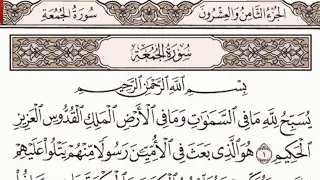 الجزء الثامن والعشرون
سورة الجمعة
سُورَةُ الجُمُعَةِ
بِسْمِ اللَّهِ الرَّحْمَٰنِ الرَّحِيمِ
يُسَبِّحُ لِلَّهِ مَا فِى السَّمَٰوَٰتِ وَمَا فِى الْأَرْضِ الْمَلِكِ الْقُدُّوسِ الْعَزِيزِ
الْحَكِيمِ ١ هُوَ الَّذِى بَعَثَ فِى الْأُمِّيِّـۧنَ رَسُولًا مِّنْهُمْ يَتْلُوا۟ عَلَيْهِمْ